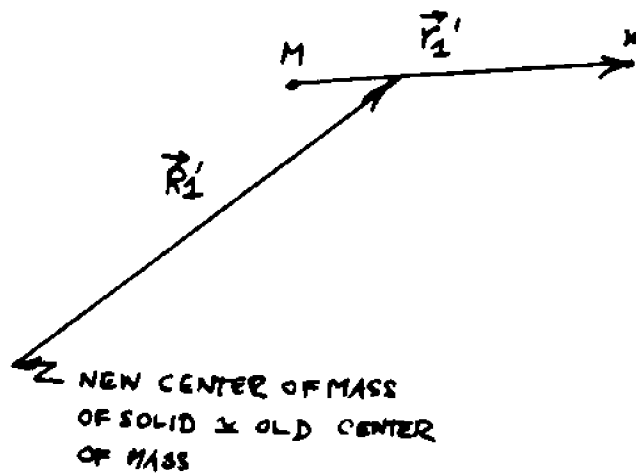 M
r⃗₁′
R⃗₁′
NEW CENTER OF MASS
OF SOLID ≃ OLD CENTER
OF MASS